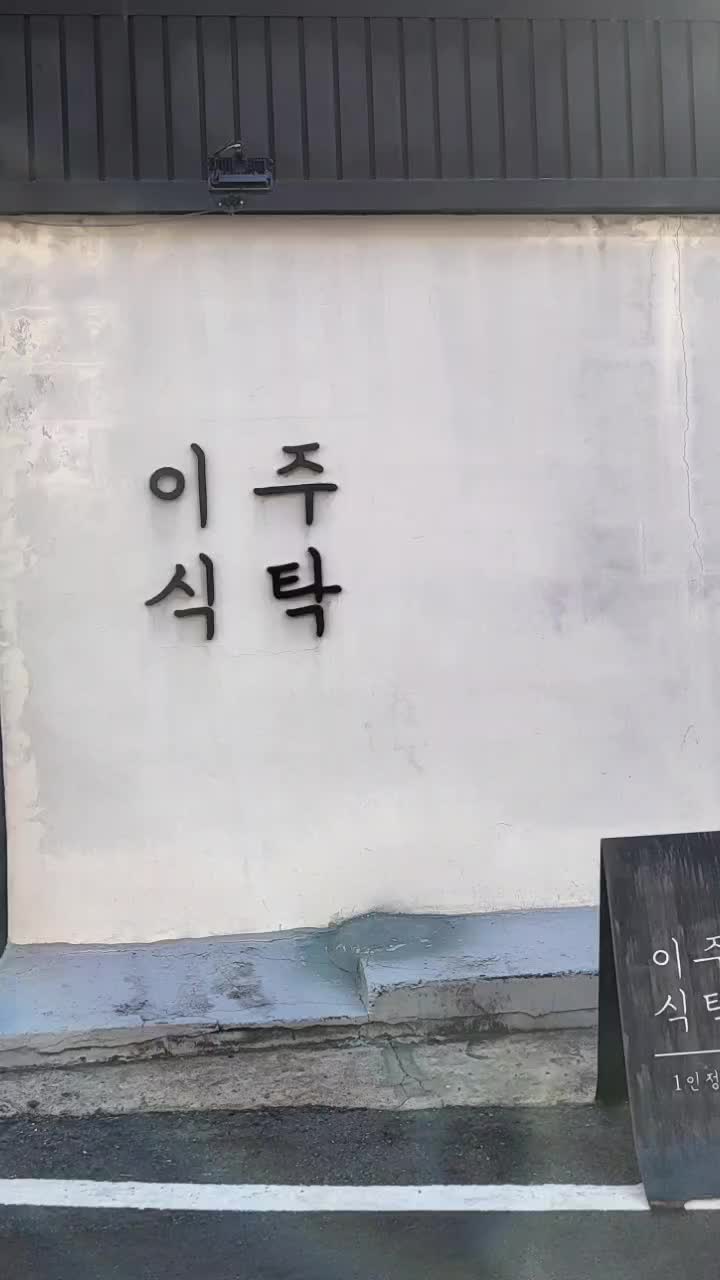 이주
식탁
이주
식탁
1인정